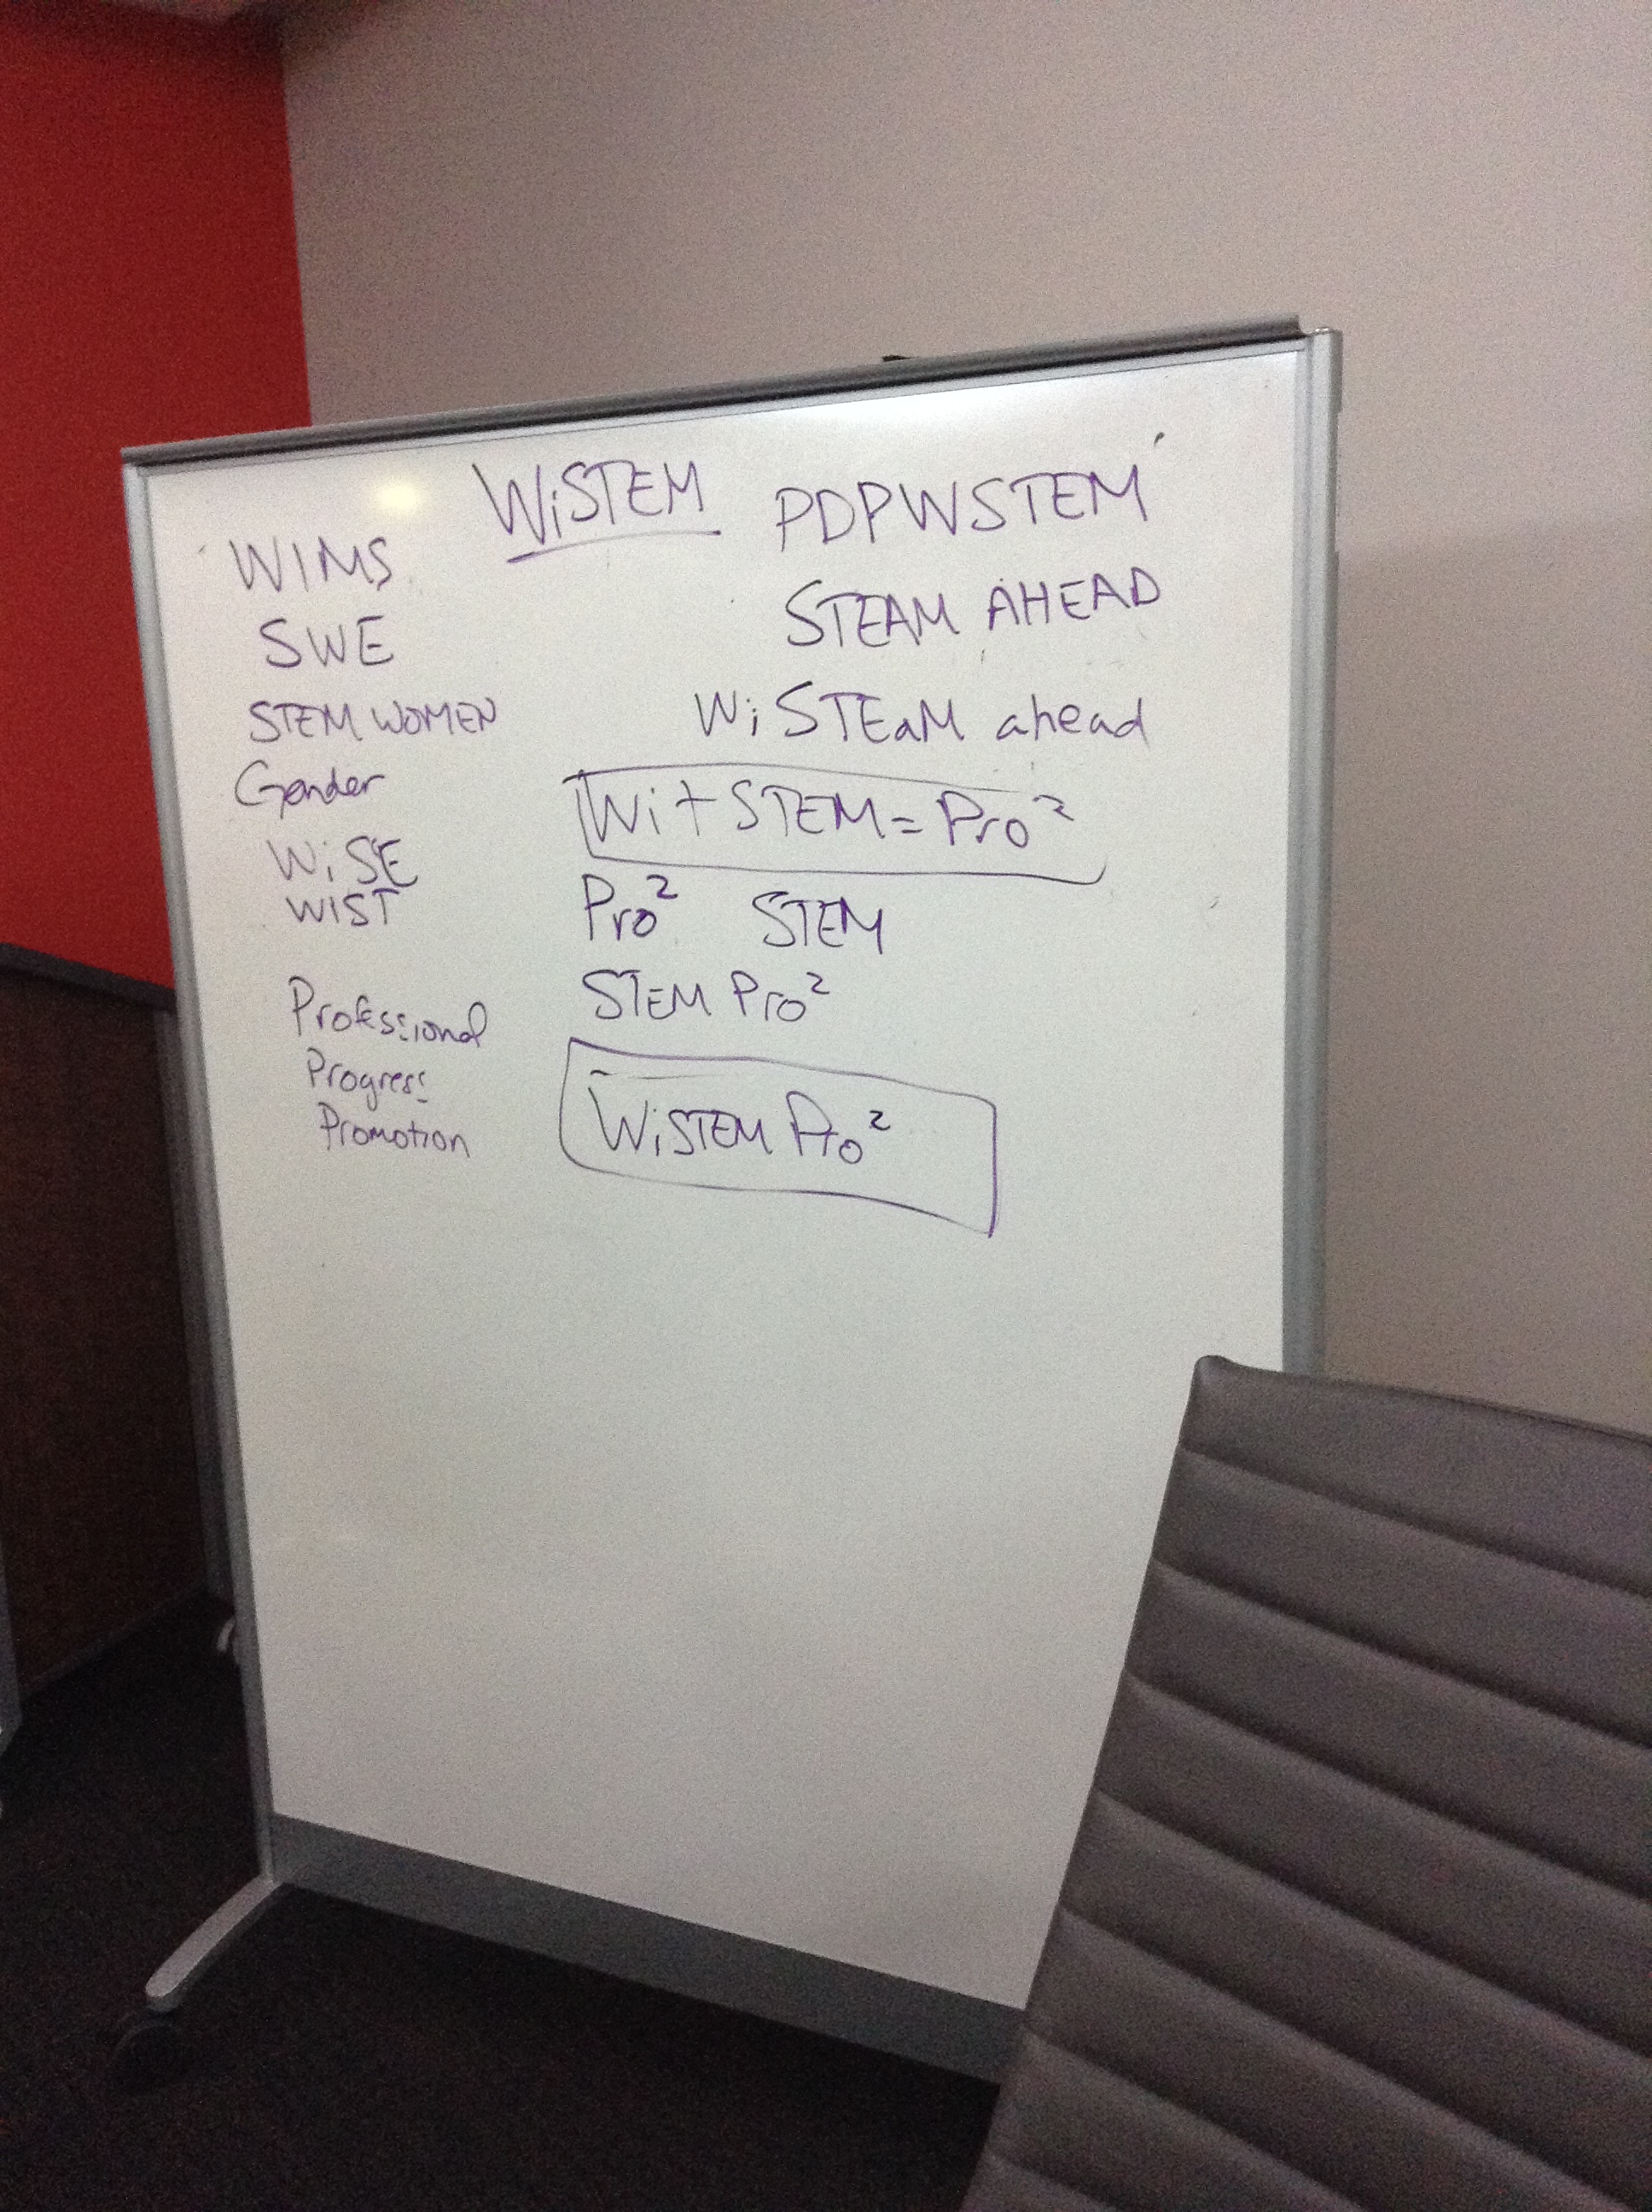 WiSTEM
PDPWSTEM
WIMS
SWE
STEM WOMEN
Gender
WiSE
WIST
Professional
Progress
Promotion
STEAM AHEAD
WiSTEaM ahead
Wi + STEM = Pro²
Pro² STEM
STEM Pro²
WiSTEM Pro²